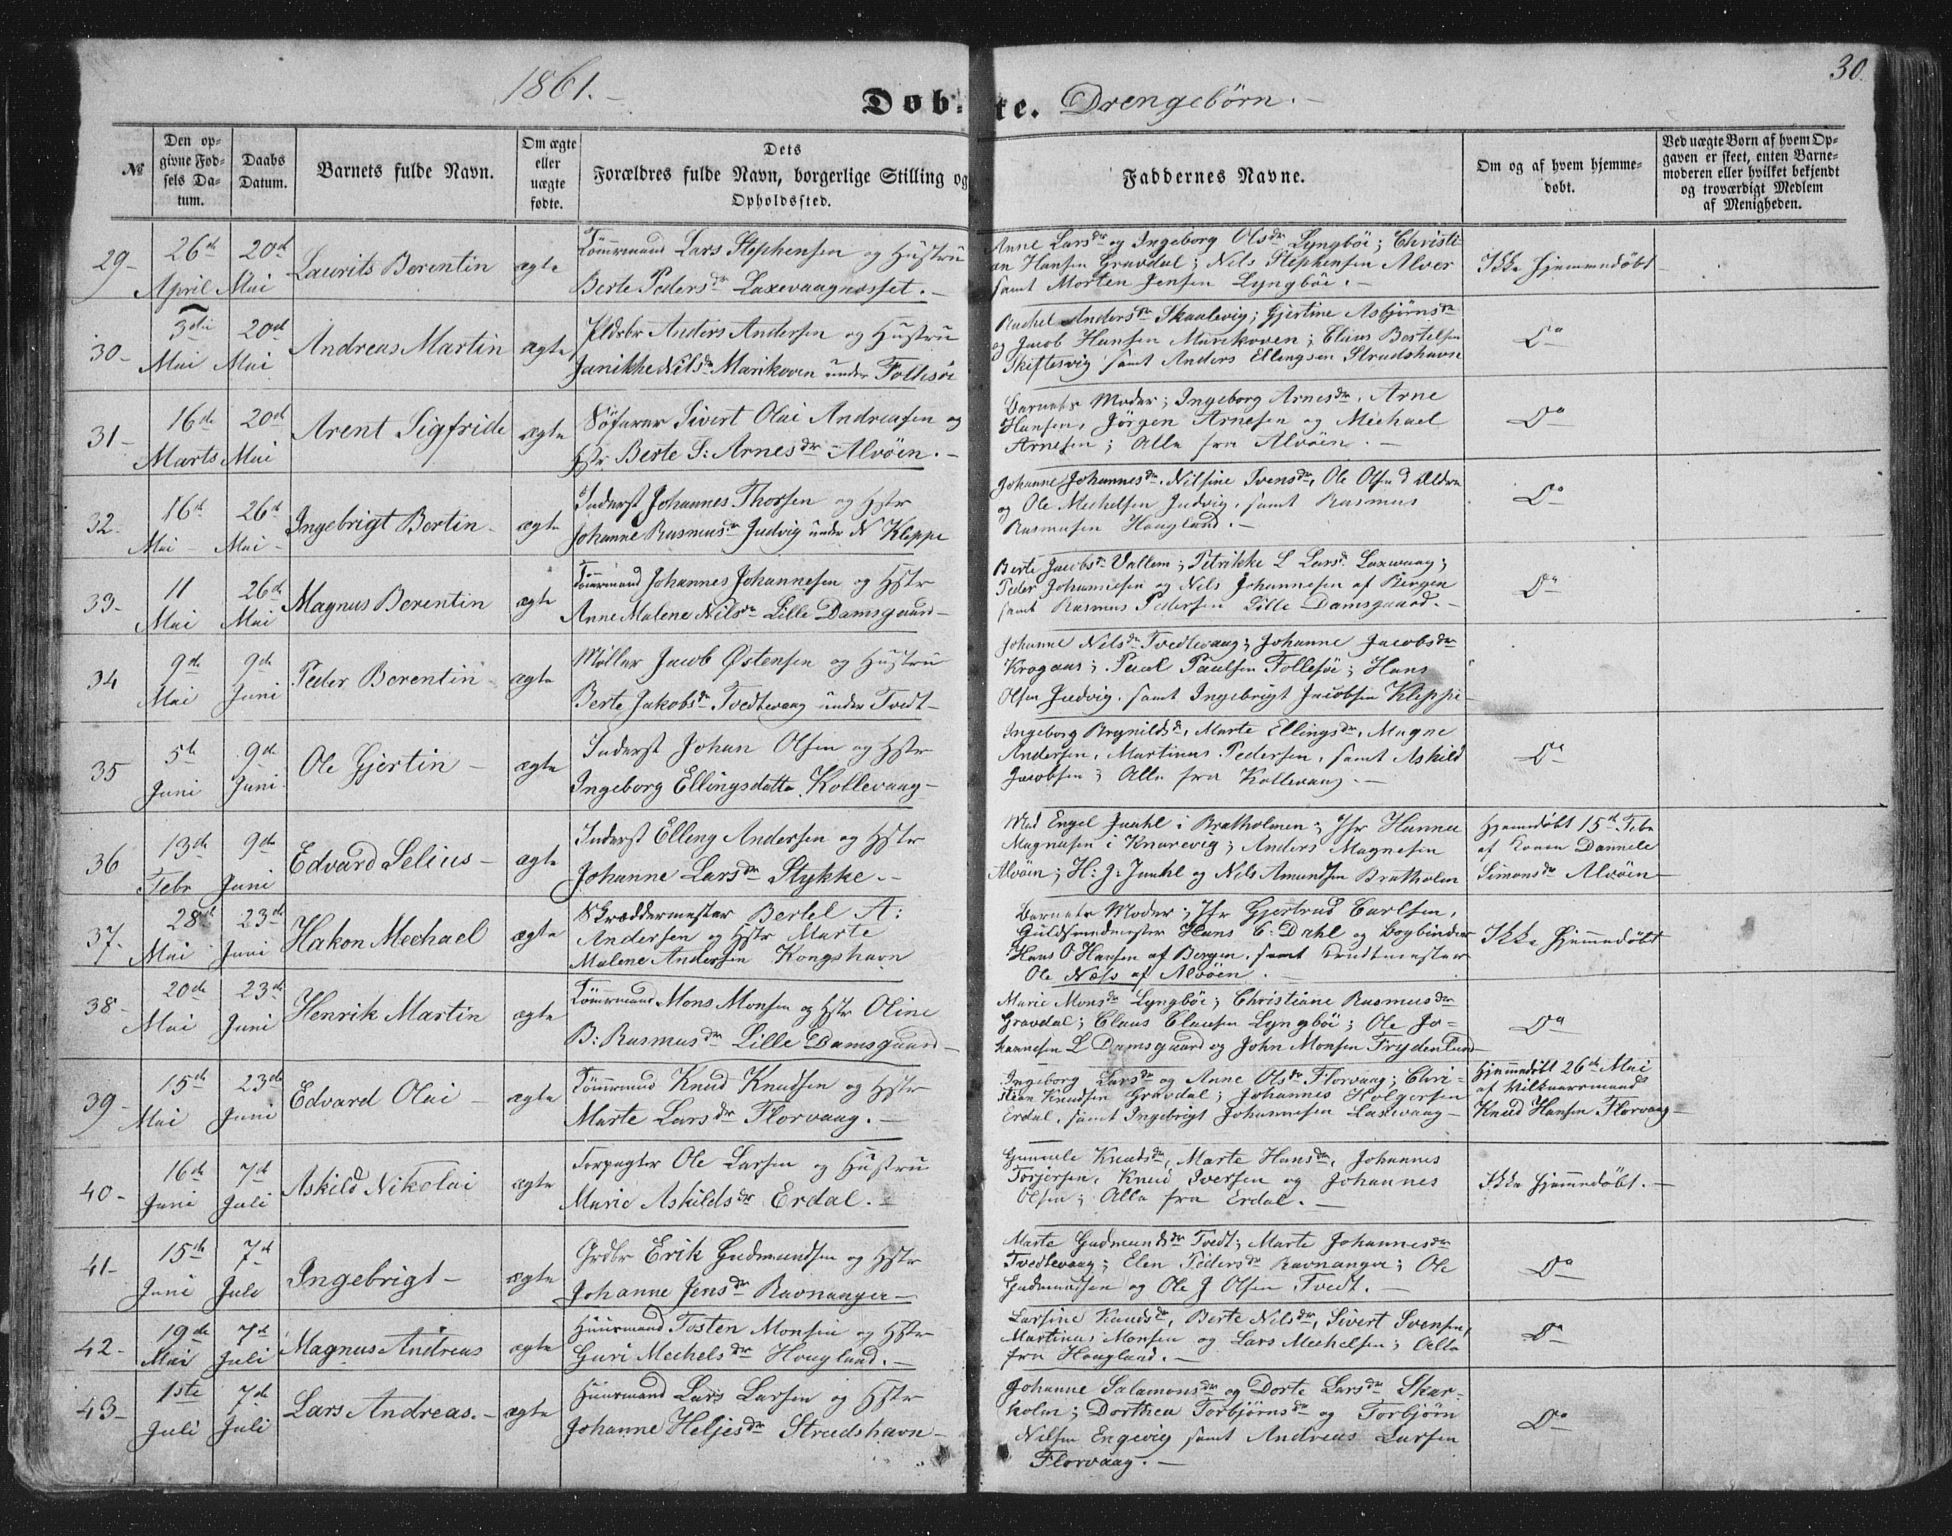 1861.
Döbte. Drengebörn.
30.
№
Den opgivne Fødsels Datum.
Daabs Datum.
Barnets fulde Navn.
Om ægte eller uægte fødte.
Dets Forældres fulde Navn, borgerlige Stilling og Opholdssted.
Faddernes Navne.
Om og af hvem hjemmedøbt.
Ved uægte Børn af hvem Opgaven er skeet, enten Barnemoderen eller hvilket bekjendt og troværdigt Medlem af Menigheden.
29- 26de April 20de Mai Laurits Berentin ægte
Tømrmand Lars Stephensen og Hustru
Berte Pedersdr Laxevaagnesset.
Anne Larsdr og Ingeborg Olsdr Lyngböe; Christi-
an Hansen Gravdal; Nils Stephensen Alver
samt Morten Jensen Lyngböe.
Ikke hjemmedöbt
30- 3die Mai 20de Mai Andreas Martin ægte
Anders Andersen og Hustru
Janikke Nilsdr Marikoven under Follesöe
Rachel Andersdr Skaalevig; Gjertine Asbjörnsdr
og Jacob Hansen Marikoven; Claus Bertelsen
Skiftesvig samt Anders Ellingsen Strudshavn
Do
31- 16de Marts 20de Mai Arent Sigfride ægte
Söfarer Sivert Olai Andreasen og
Hstr Berte S: Arnesdr Alvöen.
Barnets Moder; Ingeborg Arnesdr, Arne
Hansen, Jörgen Arnesen og Mechael
Arnesen; Alle fra Alvöen.
Do
32. 16de Mai 26de Mai Ingebrigt Bertin ægte
Inderst Johannes Thorsen og Hstr
Johanne Rasmusdr Judvig under N Kleppe
Johanne Johannesdr, Nilsine Svensdr, Ole Olsen d Ældre
og Ole Mechelsen Judvig, samt Rasmus
Rasmusen Haagland.
Do
33- 11 Mai 26de Mai Magnus Berentin ægte
Tømrmand Johannes Johannesen og Hstr
Anne Malene Nilsdr Lille Damsgaard
Berte Jacobsdr Vallem; Petrikke L Larsdr Laxevaag;
Peder Johannesen og Nils Johannesen af Bergen
samt Rasmus Pedersen Lille Damsgaard.
Do
34 9de Mai 9de Juni Peder Berentin ægte
Møller Jacob Østensen og Hustru
Berte Jakobsdr Tvedtevaag under Tvedt
Johanne Nilsdr Tvedtevaag; Johanne Jacobsdr
Krogaas; Paul Paulsen Follesöe; Hans
Olsen Judvig, samt Ingebrigt Jacobsen Kleppe
35 5te Juni 9de Juni Ole Gjertin ægte
Inderst Johan Olsen og Hstr
Ingeborg Ellingsdatte Kollevaag
Ingeborg Brynildsdr, Marte Ellingsdr, Magne
Andersen, Martinus Pedersen, samt Askild
Jacobsen; Alle fra Kollevaag.
Do
36 13de Febr 9de Juni Edvard Selius ægte
Inderst Elling Andersen og Hstr
Johanne Larsdr Stykke.
Mad Engel Juuhl i Bratholmen; Jfr Hanna
Magnusen i Knarevig; Anders Magnesen
Alvöen; H: J: Juuhl og Nils Amundsen Bratholm
Hjemmdöbt 15de Febr
af Konen Dannele
Simonsdr Alvöen
37- 28de Mai 23de Juni Hakon Mechael ægte
Skræddermester Bertel A:
Andersen og Hstr Marte
Malene Andersen Kongshavn
Barnets Moder; Jfr Gjertrud Carlsen,
Guldsmedmester Hans C: Dahl og Bogbinder
Hans O Hansen af Bergen, samt Krudtmester
Ole Næss af Alvöen.
Ikke Hjemmedöbt
38- 20de Mai 23de Juni Henrik Martin ægte
Tømrmand Mons Monsen og Hstr Oline
B: Rasmusdr Lille Damsgaard
Marie Monsdr Lyngböe; Christiane Rasmusdr
Gravdal; Claus Clausen Lyngböe; Ole Jo-
hannesen L Damsgaard og John Monsen Frydenlund
Do
39- 15de Mai 23de Juni Edvard Olai ægte
Tømrmand Knud Knudsen og Hstr
Marte Larsdr Florvaag.
Ingeborg Larsdr og Anne Olsdr Florvaag; Chri-
stian Knudsen Gravdal; Johannes Holgersen
Erdal, samt Ingebrigt Johannesen Laxevaag
Hjemmedöbt 26de Mai
af Vilkaarsmand
Knud Hansen Florvaag
40- 16de Juni 7de Juli Askild Nikolai ægte
Forpagter Ole Larsen og Hustru
Marie Askildsdr Erdal.
Gunnele Knudsdr, Marte Hansdr, Johannes
Torjersen, Knud Iversen og Johannes
Olsen; Alle fra Erdal.
Ikke hjemmedöbt.
41- 15de Juni 7de Juli Ingebrigt ægte
Grdbr Erik Gudmundsen og Hstr
Johanne Jensdr Ravnanger
Marte Gudmundsdr Tvedt; Marte Johannesdr
Tvedtevaag; Elen Pedersdr Ravnanger; Ole
Gudmundsen og Ole J Olsen Tvedt.
Do
42- 19de Mai 7de Juli Magnus Andreas ægte
Huusmand Tosten Monsen og Hstr
Guri Mechelsdr Haagland.
Larsine Knudsdr, Berte Nilsdr, Sivert Svensen,
Martinus Monsen og Lars Mechelsen; Alle
fra Haagland.
Do
43- 1ste Juli 7de Juli Lars Andreas. ægte
Huusmand Lars Larsen og Hstr
Johanne Heljesdr Strudshavn
Johanne Salamonsdr og Dorte Larsdr Skar-
holm; Dorthea Torbjörnsdr og Torbjörn
Nilsen Engevig samt Andreas Larsen
Florvaag.
Do